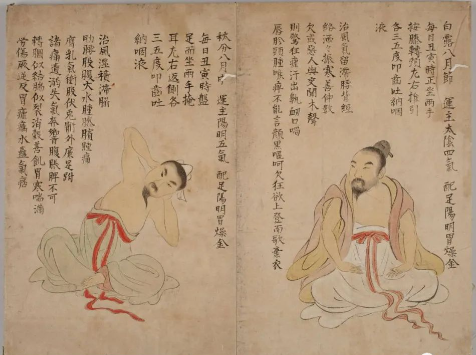 白露八月節 運主太陰四氣 配足陽明胃燥金
每日丑寅時正坐兩手
按膝轉頭左右推引
各三五度叩齒吐納咽
液
治風氣留滯腰背經
絡洒洒振寒善伸數
欠或惡人與火聞木聲
則驚狂瘧汗出鼽衄口喎
唇胗頸腫喉痺不能言顏黑嘔呵欠狂欲上登而歌棄衣
秋分八月中 運主陽明五氣 配足陽明胃燥金
每日丑寅時盤
足而坐兩手掩
耳左右返側各
三五度叩齒吐
納咽液
治風濕積滯脇
肋腰股腹大水腫膝臏腫痛
膺乳氣衝股伏兔胻外廉足跗
諸痛遺溺失氣奔響腹脹髀不可
轉膕似結腨似裂消穀善飢胃寒喘滿